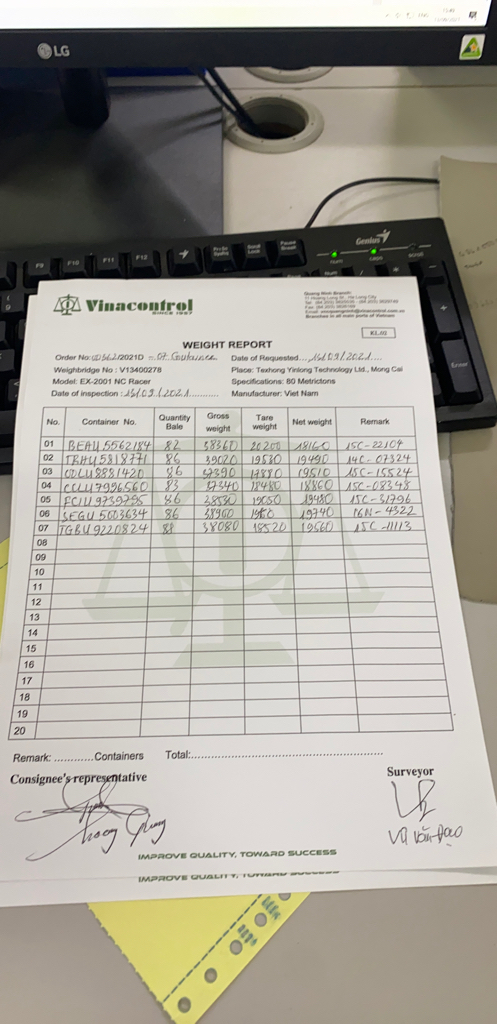 LG
Genius
F9 F10 F11 F12
Pause Break
Enter
Vinacontrol
SINCE 1957
Quang Ninh Branch:
Branches in all main ports of Vietnam
KL/G
WEIGHT REPORT
Order No: /2021D - 07 Container Date of Requested 15/09/2021
Weighbridge No : V13400278 Place: Texhong Yinlong Technology Ltd., Mong Cai
Model: EX-2001 NC Racer Specifications: 80 Metrictons
Date of inspection : 15/09/2021 Manufacturer: Viet Nam
No. Container No. Quantity Bale Gross weight Tare weight Net weight Remark
01 BEAU 5562184 82 38360 20200 18160 15C-22104
02 86 39020 19530 19490 14C-07324
03 86 37390 17880 19510 15C-15524
04 83 37340 18480 18860 15C-08348
05 86 38530 19050 19480 15C-31796
06 SEGU 5003634 86 38960 19740 16N-4322
07 TGBU 9220824 88 38080 18520 19560 15C-11113
08
09
10
11
12
13
14
15
16
17
18
19
20
Remark: ............Containers Total:
Consignee's representative Surveyor
Vũ Văn Đạo
IMPROVE QUALITY, TOWARD SUCCESS
IMPROVE QUALITY, TOWARD SUCCESS